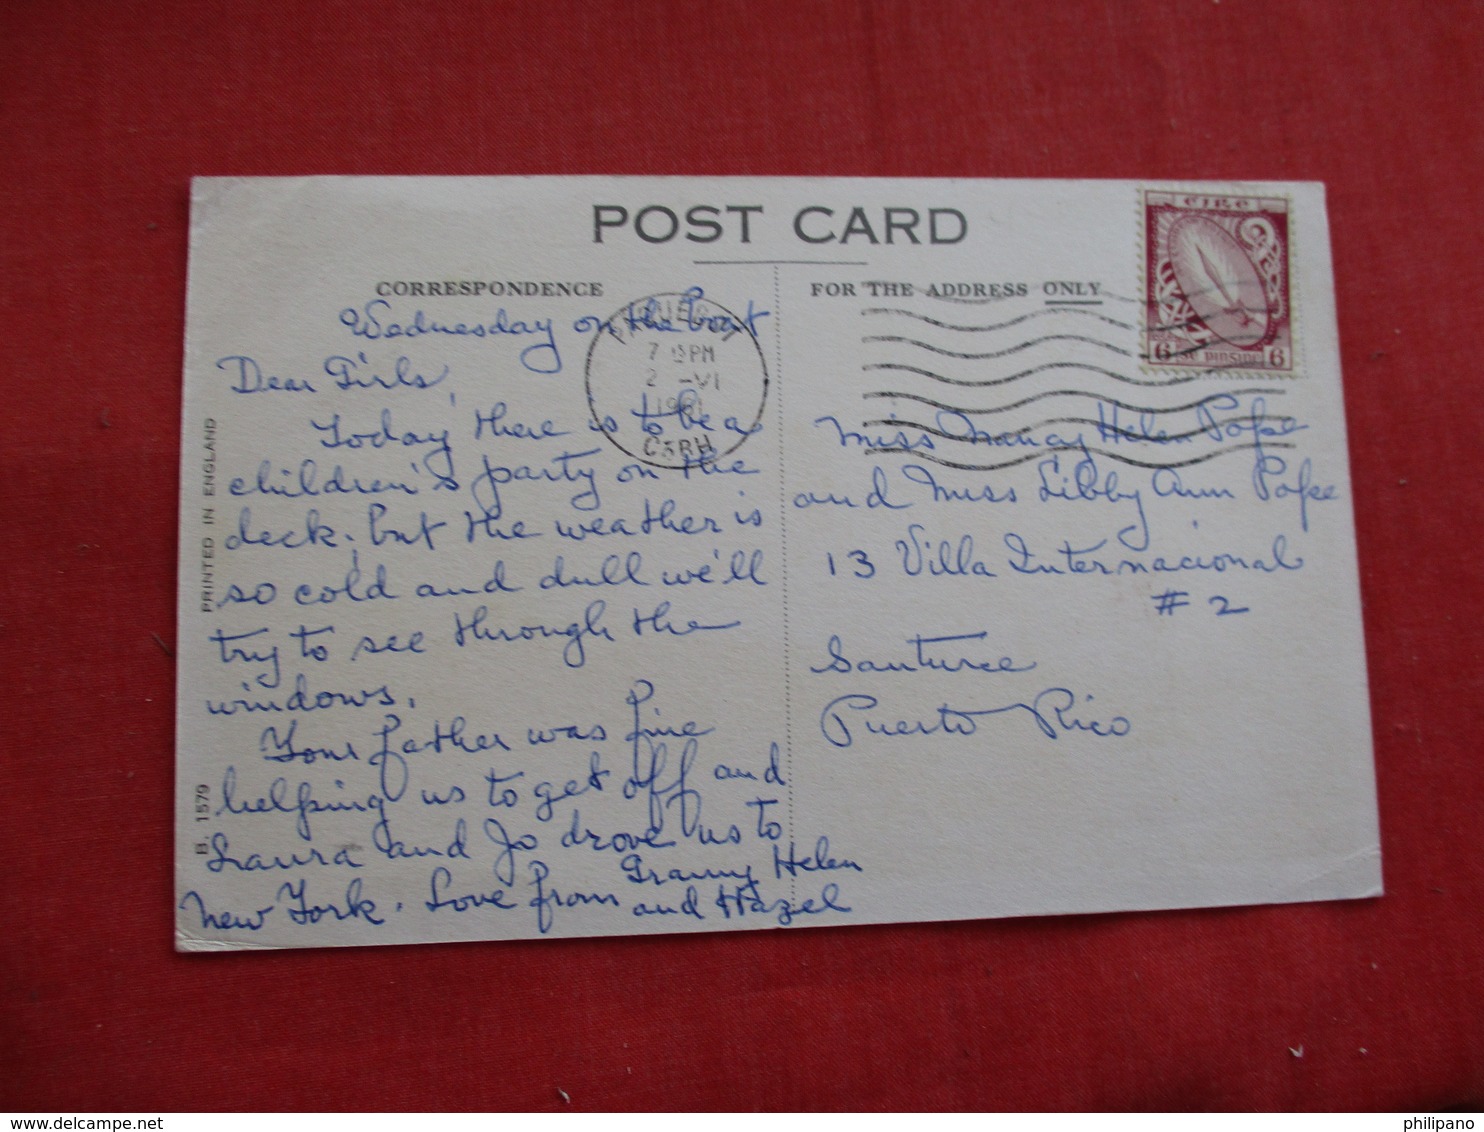 POST CARD
CORRESPONDENCE
FOR THE ADDRESS ONLY
ÉIRE
6
6
7 PM
2 -VI
1961
PRINTED IN ENGLAND
B. 1579
Wednesday on the boat
Dear Girls,
Today there is to be a
children's party on the
deck, but the weather is
so cold and dull we'll
try to see through the
windows.
Your father was fine
helping us to get off and
Laura and Jo drove us to
New York. Love from Granny Helen
and Hazel
Miss Nancy Helen Pope
and Miss Libby Ann Pope
13 Villa Internacional
# 2
Santurce
Puerto Rico
delcampe.net
philipano